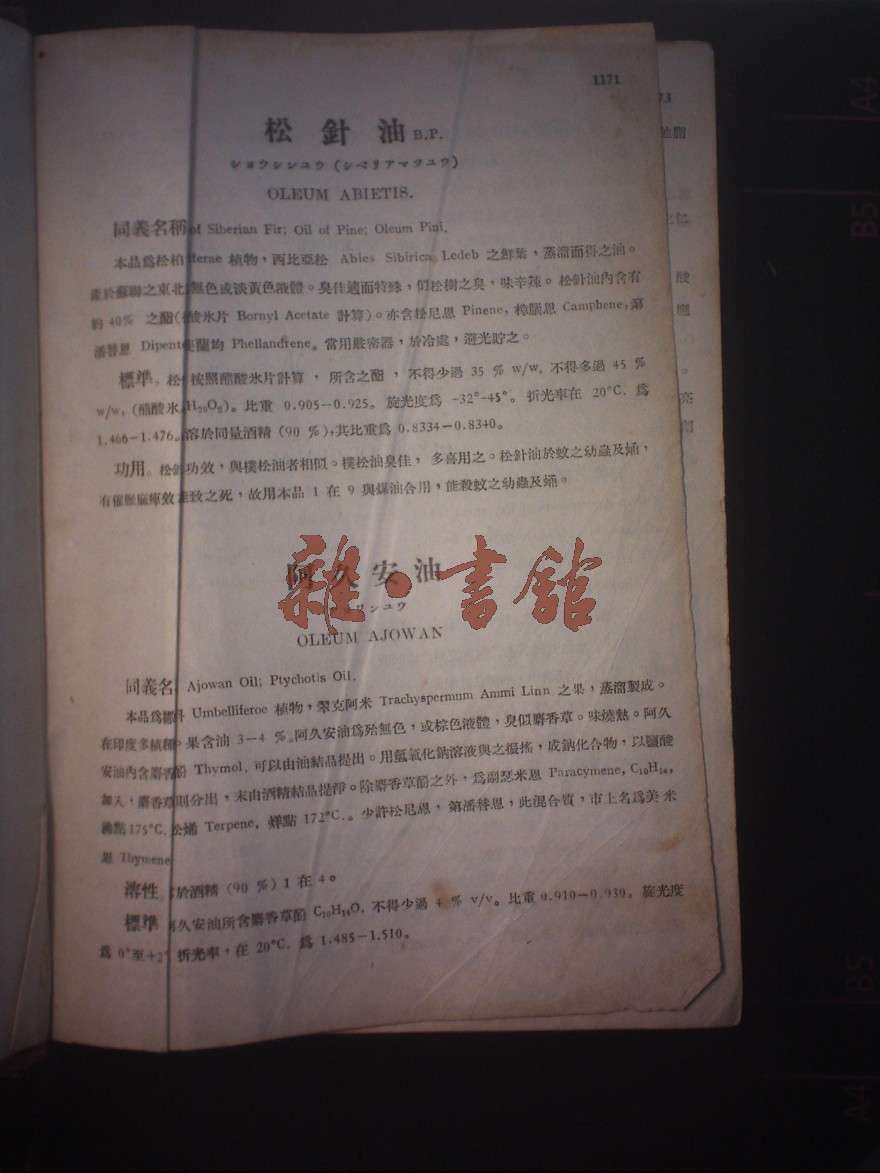 1171
松針油 B.P.
ショウシンユウ (シベリアマツユウ)
OLEUM ABIETIS.
同義名稱 of Siberian Fir; Oil of Pine; Oleum Pini.
本品爲松柏 iferae 植物,西比亞松 Abies Sibirica Ledeb 之鮮葉,蒸溜而得之油。
產於蘇聯之東北 無色或淡黃色液體。臭佳適而特綠,似松樹之臭,味辛辣。松針油內含有
約 40% 之酯( 酸氷片 Bornyl Acetate 計算)。亦含松尼恩 Pinene, 樟腦恩 Camphene, 第
潘替恩 Dipent 蘭均 Phellandrene。當用嚴密器,於冷處,避光貯之。
標準。松 按照醋酸氷片計算,所含之酯,不得少過 35 % w/w, 不得多過 45 %
w/w, (醋酸氷 H₂₀O₂)。比重 0.905—0.925。旋光度爲 -32°-45°。折光率在 20°C. 爲
1.466—1.476。溶於同量酒精 (90 %),其比重爲 0.8334—0.8340。
功用。松針 功效,與樸松油者相似。樸松油臭佳,多喜用之。松針油於蚊之幼蟲及蛹,
有催眠麻痺效 致之死,故用本品 1 在 9 與煤油合用,能殺蚊之幼蟲及蛹。
雜·書館
阿久安油
ワンユウ
OLEUM AJOWAN
同義名 Ajowan Oil; Ptychotis Oil.
本品爲 科 Umbelliferoe 植物,翠克阿米 Trachyspermum Ammi Linn 之果,蒸溜製成。
在印度多植種。果含油 3—4 %。阿久安油爲殆無色,或棕色液體,臭似麝香草。味燒熱。阿久
安油內含麝香 酚 Thymol, 可以由油結晶提出。用氫氧化鈉溶液與之振搖,成鈉化合物,以鹽酸
加入,麝香草 則分出,末由酒精結晶提淨。除麝香草酚之外,爲副瑟米恩 Paracymene, C₁₀H₁₄,
沸點 175°C. 松烯 Terpene, 沸點 172°C.。少許松尼恩,第潘替恩,此混合質,市上名爲美米
恩 Thymene
溶性。 於酒精 (90 %) 1 在 4。
標準 阿久安油所含麝香草酚 C₁₀H₁₄O, 不得少過 4 % v/v。比重 0.910—0.930。旋光度
爲 0° 至 +2° 折光率,在 20°C. 爲 1.485—1.510。